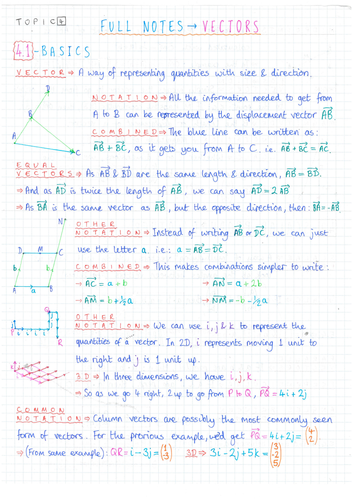 TOPIC 4
FULL NOTES → VECTORS
4.1 - BASICS
VECTOR ⇒ A way of representing quantities with size & direction.
NOTATION ⇒ All the information needed to get from
A to B can be represented by the displacement vector AB.
COMBINED ⇒ The blue line can be written as:
AB + BC, as it gets you from A to C. i.e. AB + BC = AC.
EQUAL
VECTORS ⇒ As AB & BD are the same length & direction, AB = BD.
⇒ And as AD is twice the length of AB, we can say AD = 2AB
⇒ As BA is the same vector as AB, but the opposite direction, then: BA = -AB
OTHER
NOTATION ⇒ Instead of writing AB or DC, we can just
use the letter a. i.e.: a = AB = DC.
COMBINED ⇒ This makes combinations simpler to write:
→ AC = a + b → AN = a + 2b
→ AM = b + ½a → NM = -b - ½a
OTHER
NOTATION ⇒ We can use i, j & k to represent the
quantities of a vector. In 2D, i represents moving 1 unit to
the right and j is 1 unit up.
3D ⇒ In three dimensions, we have i, j, k.
⇒ So as we go 4 right, 2 up to go from P to Q, PQ = 4i + 2j
COMMON
NOTATION ⇒ Column vectors are possibly the most commonly seen
form of vectors. For the previous example, we'd get PQ = 4i + 2j = (4 2).
⇒ (From same example): QR = i - 3j = 3D ⇒ 3i - 2j + 5k = (3 -2 5)
A
B
C
D
N
D M C
b b
A a B
P
Q
R